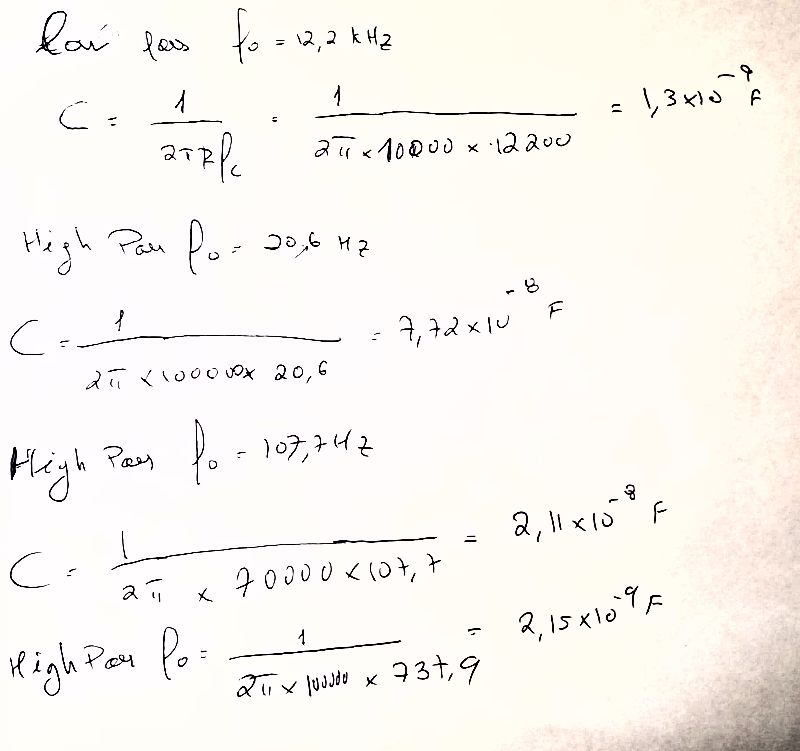 Low pass f₀ = 12,2 kHz
C = 1/(2πRf_c) = 1/(2π × 10000 × 12200) = 1,3×10⁻⁹ F
High Pass f₀ = 20,6 Hz
C = 1/(2π × 100000 × 20,6) = 7,72×10⁻⁸ F
High Pass f₀ = 107,7 Hz
C = 1/(2π × 70000 × 107,7) = 2,11×10⁻⁸ F
High Pass f₀ = 1/(2π × 100000 × 737,9) = 2,15×10⁻⁹ F